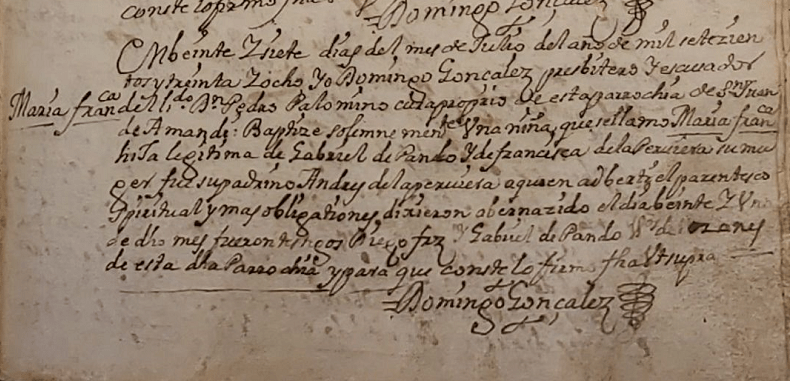 conste lo firmo fha Vt
=Domingo Gonçalez
EMbeinte Zsiete dias del mes de Julio del año de mil setezien
tos y treinta Zocho Yo Domingo Gonçalez presbitero Y escusador
Maria franca del lido Dn Pedro Palomino cura proprio de esta parrochia de Sn Fran
de Amandi: Baptize solemnemente Vna niña, que se llamo Maria franca
hiJa legitima de Gabriel de Pando Y de francisca de la Perviera su mu
ger fue su padrino Andres de la perviera a quien adbertj el parentesco
Spiritual y mas obligationes dixieron aber nazido el dia beinte Z Vno
de dho mes fueron testigos Diego frz Y Gabriel de Pando Vos de
de esta dha Parrochia y para que conste lo firmo fha Vt supra
=Domingo Gonçalez